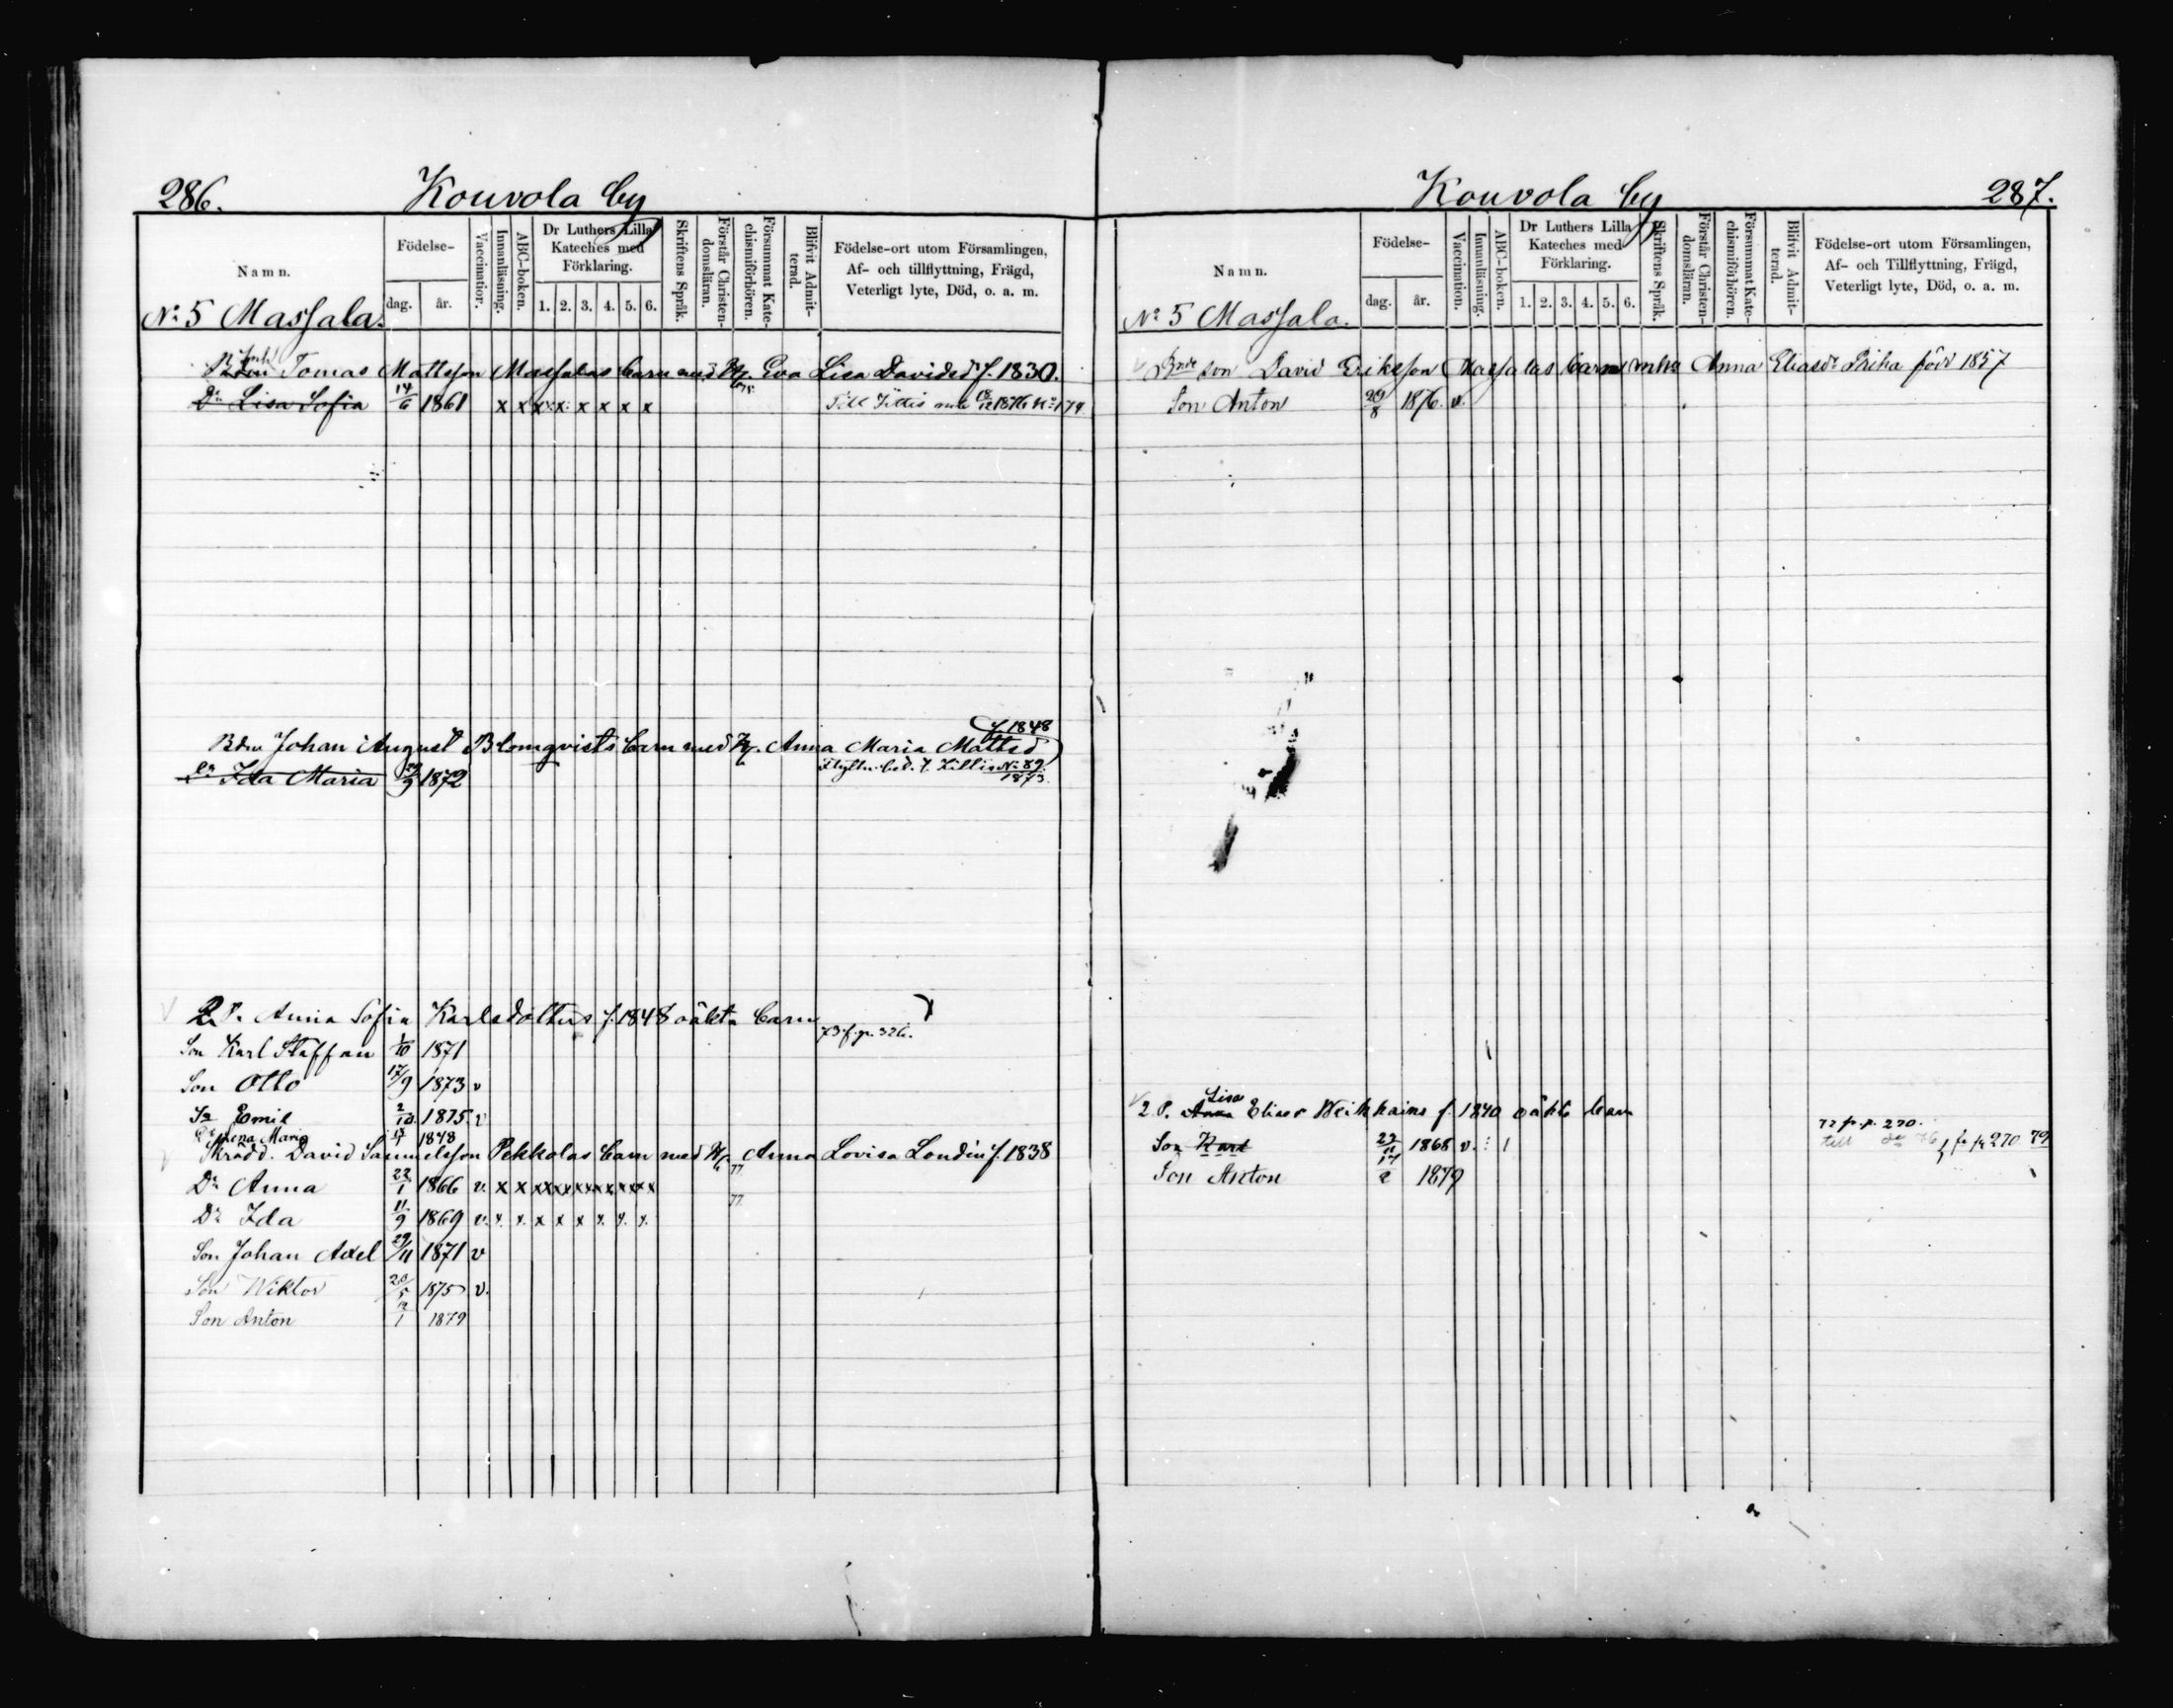 286.
Kouvola by
Namn.
Födelse-
dag.
år.
Vaccination.
Innanläsning.
ABC-boken.
Dr Luthers Lilla
Kateches med
Förklaring.
1. 2. 3. 4. 5. 6.
Skriftens Språk.
Förstår Christen-
domsläran.
Försummat Kate-
chismiförhören.
Blifvit Admit-
terad.
Födelse-ort utom Församlingen,
Af- och tillflyttning, Frägd,
Veterligt lyte, Död, o. a. m.
No 5 Massala.
Tomas Mattsson Massalas barn med H. Eva Lisa Davidsdr f. 1830.
Dr Lisa Sofia 14/6 1861 x x x x x x x x Till Jittis 1876 No 174
f. 1848
Bdn Johan August Blomqvists barn med H. Anna Maria Mattsd
Dr Ida Maria 29/9 1872 No 89.
1873.
2 P. Anna Sofia Karlsdotters f. 1848 oäkta barn
73 f. p. 326.
Son Karl Staffan 1/10 1871
Son Otto 17/9 1873 v
Sn Emil 2/10 1875. v
Lena Maria 1878
Skrädd. David Samuelsson Pekkolas barn med H. Anna Lovisa Londin f. 1838
Dr Anna 22/1 1866 v. x x xx xx xx xx xx xx 77
Dr Ida 11/9 1869 v. x. x. x x x x. x. x. 77
Son Johan Axel 29/11 1871 v
Son Wiktor 20/5 1875 v.
Son Anton 1879
Kouvola by
287.
Namn.
Födelse-
dag.
år.
Vaccination.
Innanläsning.
ABC-boken.
Dr Luthers Lilla
Kateches med
Förklaring.
1. 2. 3. 4. 5. 6.
Skriftens Språk.
Förstår Christen-
domsläran.
Försummat Kate-
chismiförhören.
Blifvit Admit-
terad.
Födelse-ort utom Församlingen,
Af- och Tillflyttning, Frägd,
Veterligt lyte, Död, o. a. m.
No 5 Massala.
Bnde son David Eriksson Massalas barn mhu Anna Eliasdr född 1857
Son Anton 29/8 1876. v.
Lisa
2 P. Anna Eliasd f. 1840 oäkta barn
72 fr. p. 270.
Son Karl 1868 v. till 76 fr p 270 79
Son Anton 17/2 1879